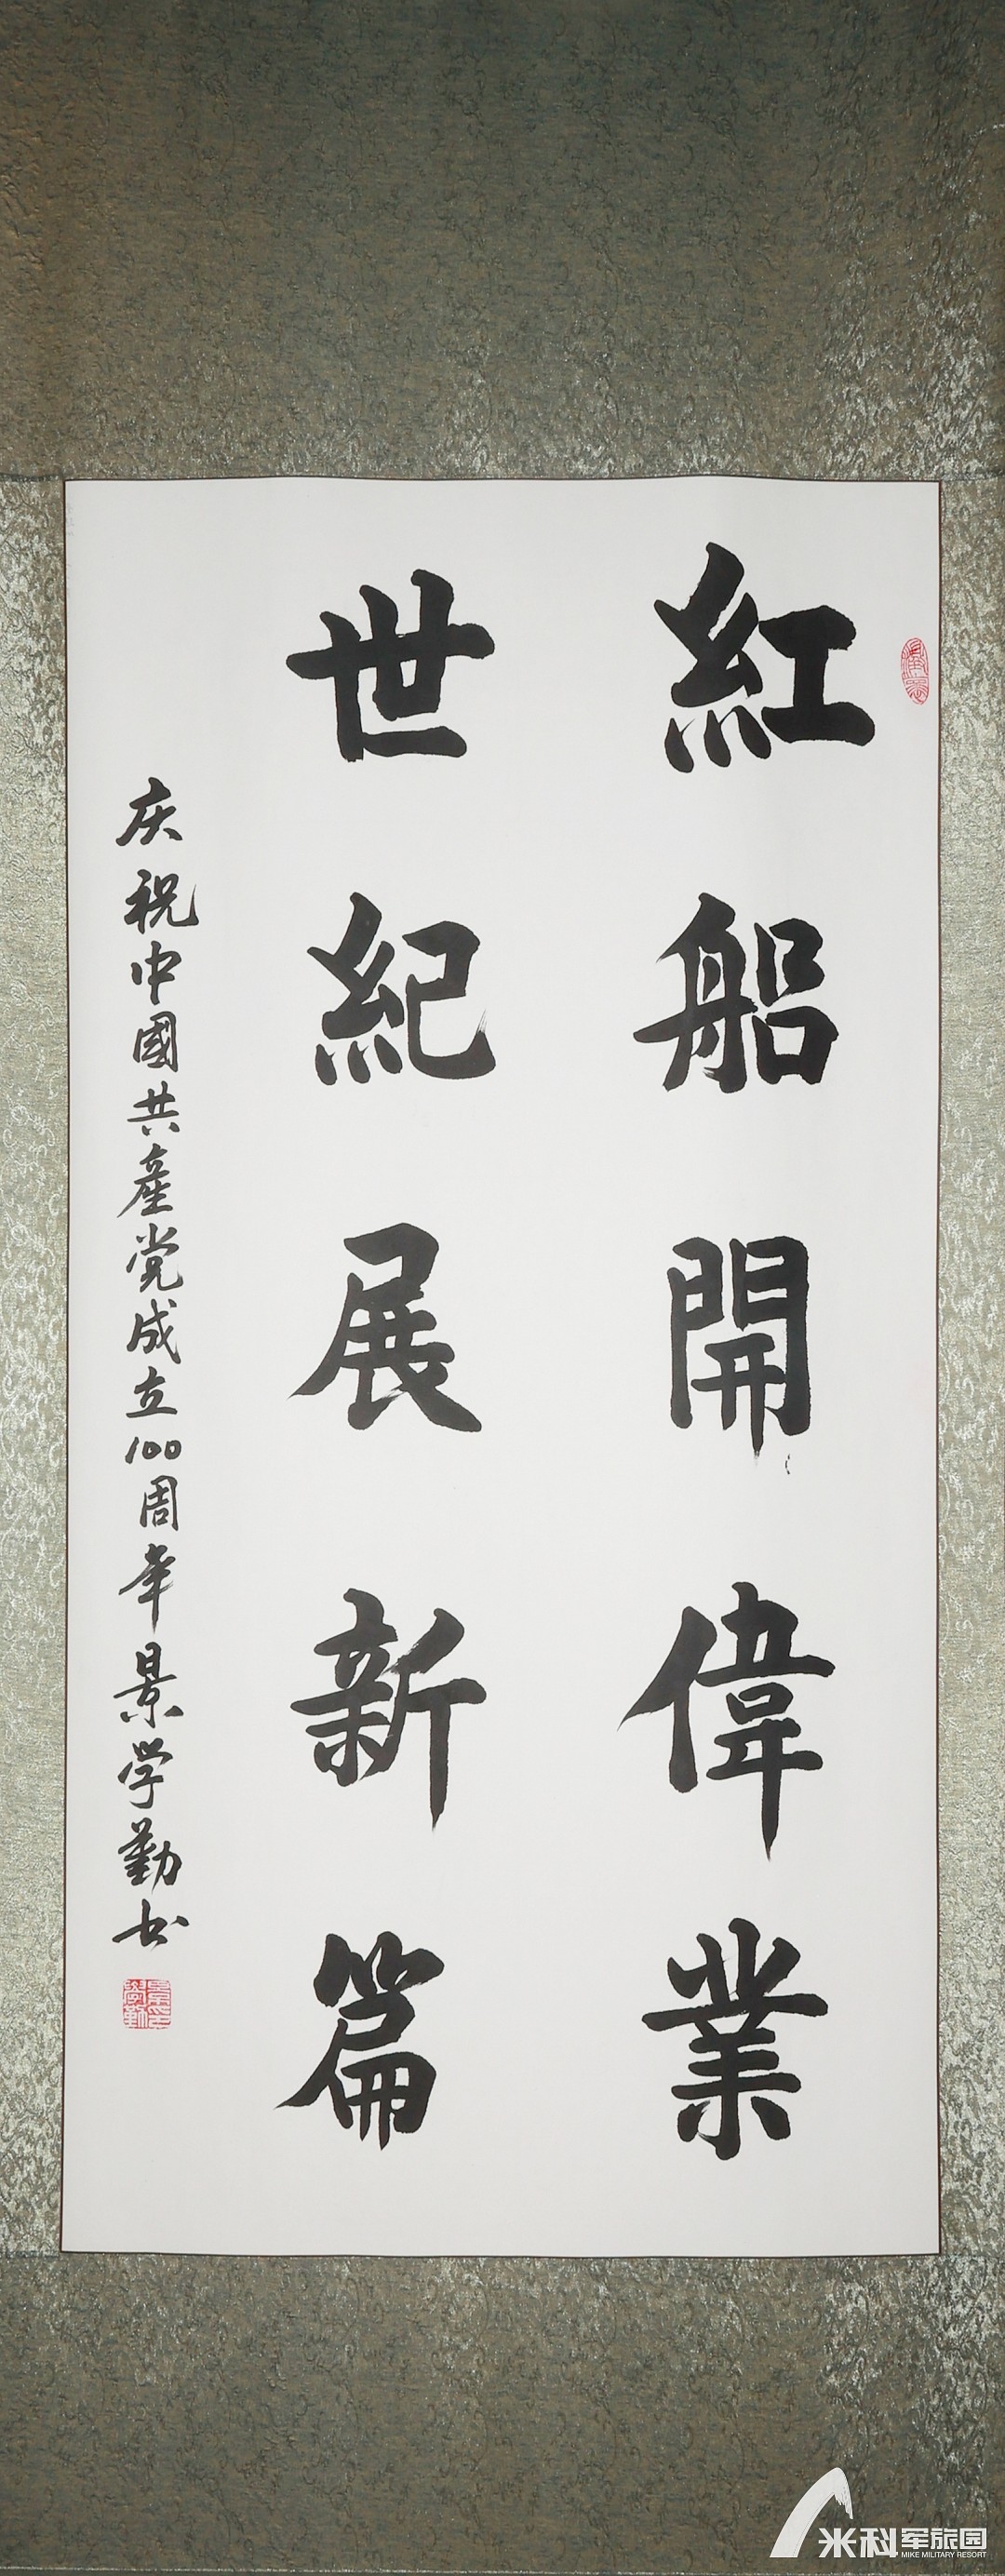 紅船開偉業
世紀展新篇
庆祝中國共產党成立100周年景学勤书
米科军旅园
MIKE MILITARY RESORT